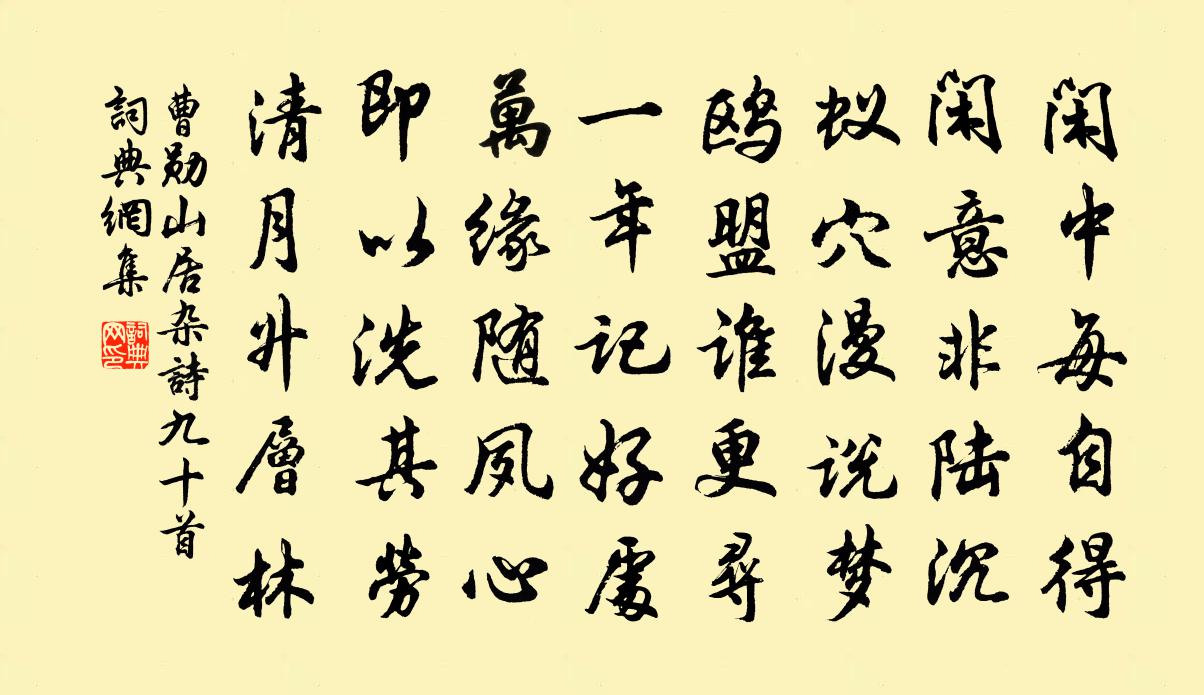 闲中每自得
闲意非陆沉
蚁穴漫说梦
鸥盟谁更寻
一年记好處
萬缘随夙心
即以洗其勞
清月升層林
曹勋山居杂詩九十首
詞典網集
詞典網印